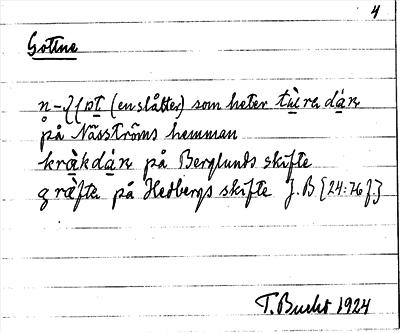 4
Gottne
(en slåtter) som heter
på Näströms hemman
kràkdán på Berglunds skifte
gräfte på Hedbergs skifte J.B [24:76f.]
T. Bucht 1924